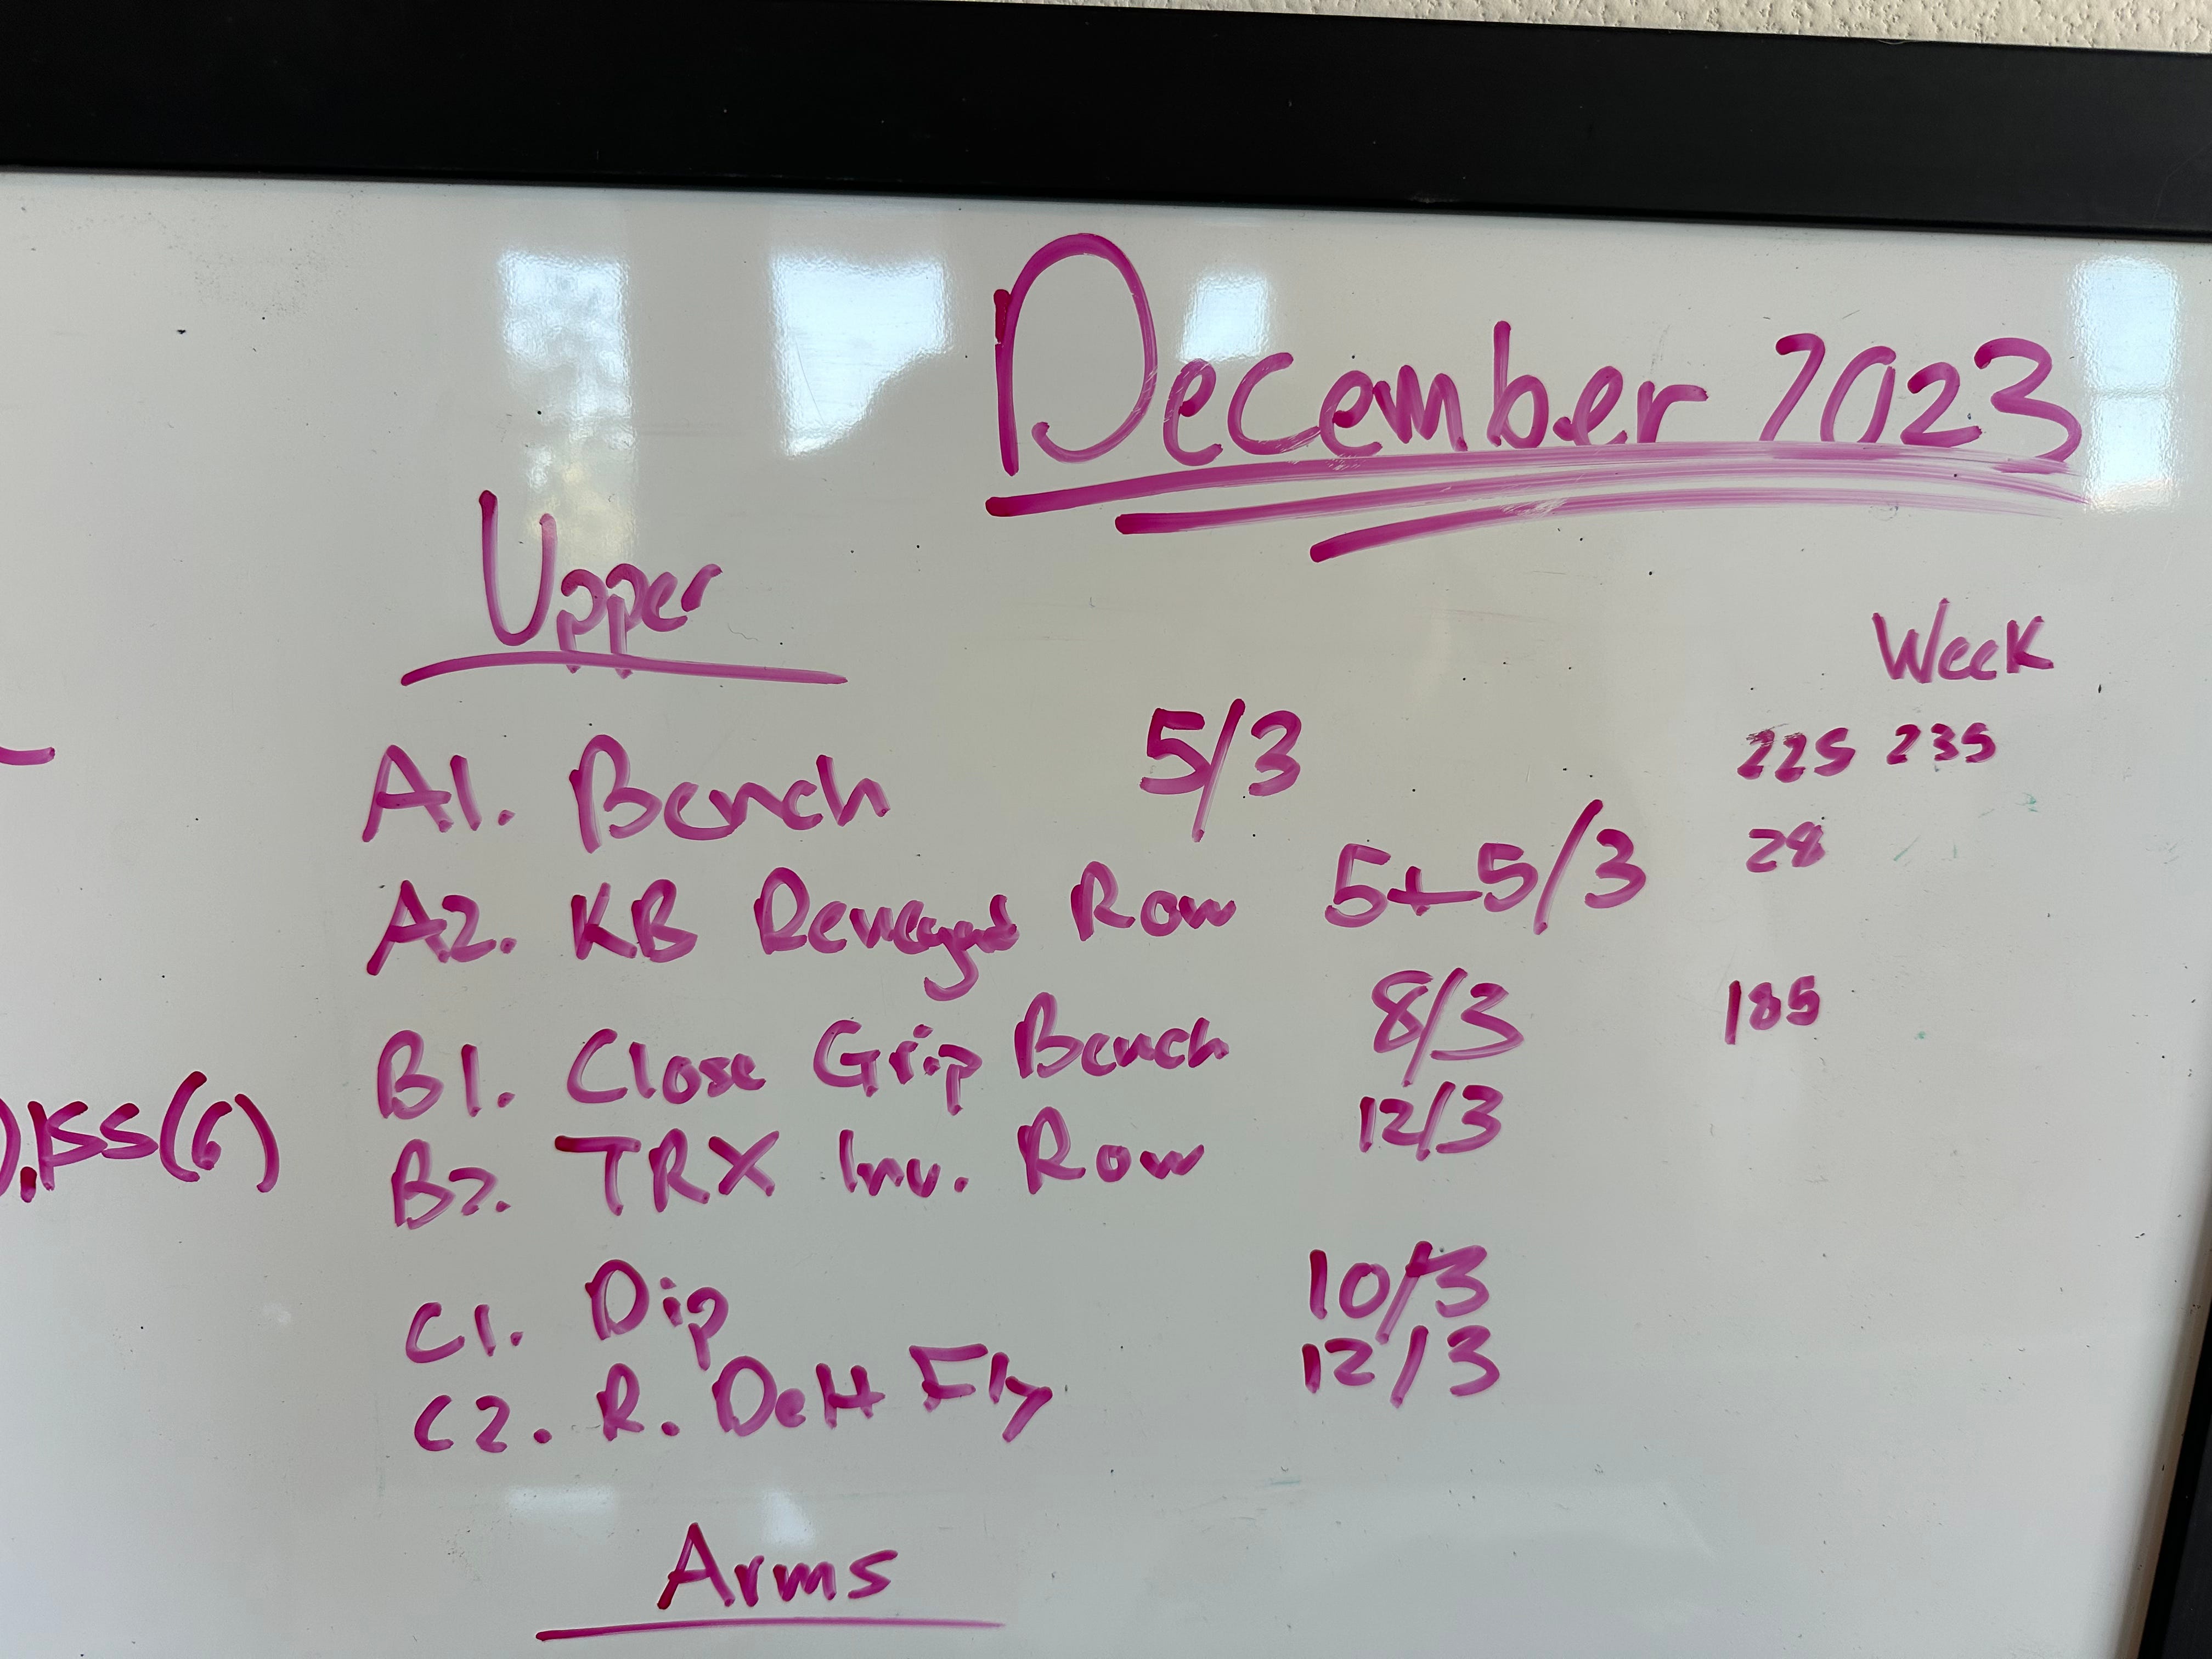 December 2023
Upper
Week
A1. Bench 5/3 225 235
A2. KB Renegade Row 5+5/3 28
B1. Close Grip Bench 8/3 185
B2. TRX Inv. Row 12/3
C1. Dip 10/3
C2. R. Delt Fly 12/3
Arms
),KSS(6)